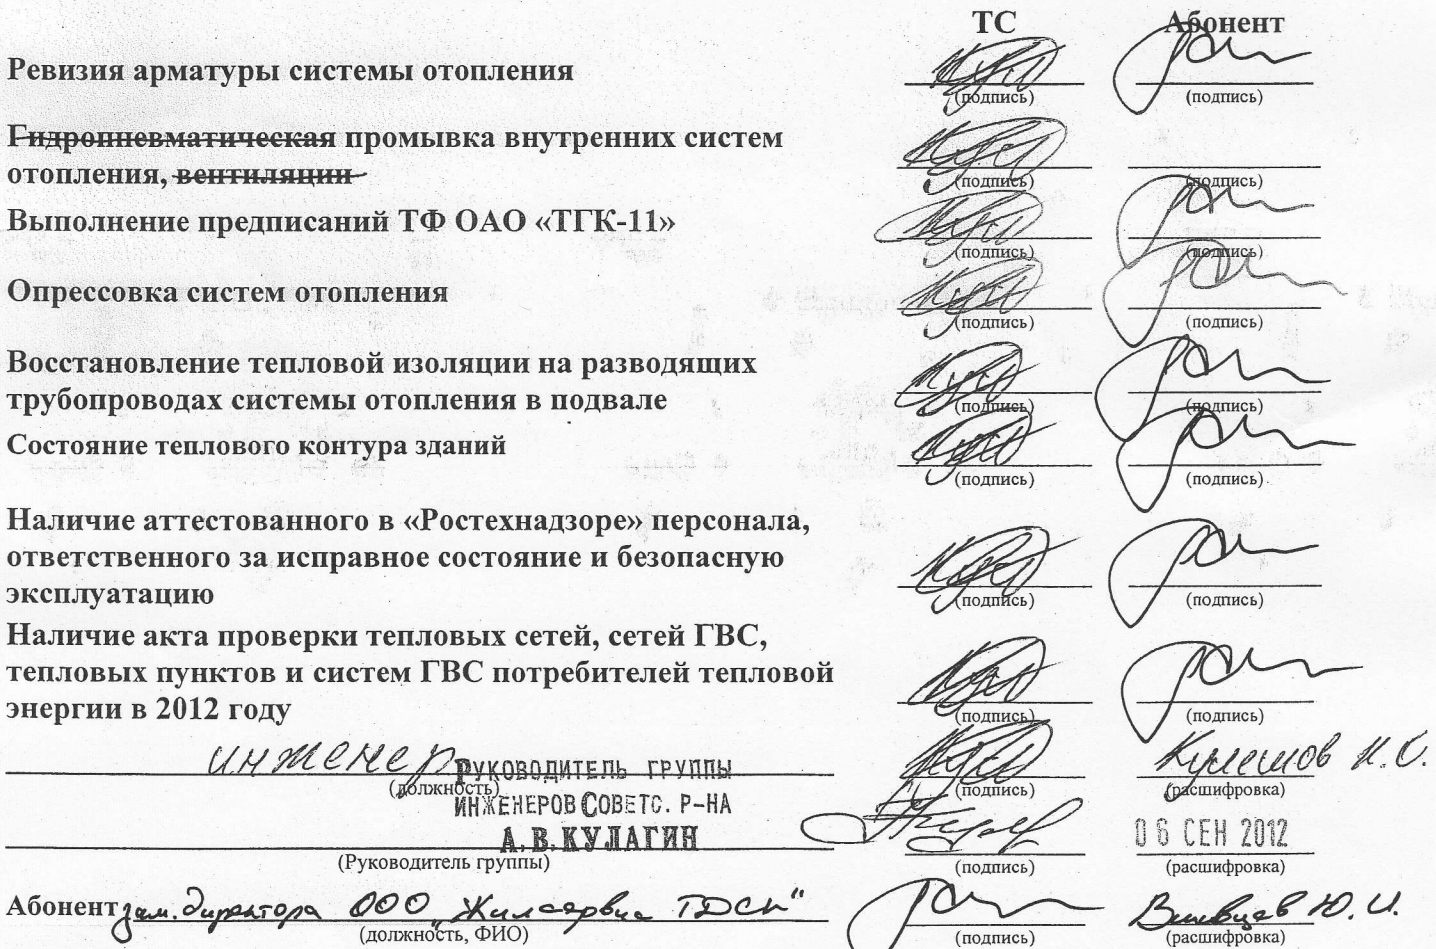 ТС Абонент
Ревизия арматуры системы отопления
(подпись) (подпись)
Гидропневматическая промывка внутренних систем
отопления, вентиляции
(подпись) (подпись)
Выполнение предписаний ТФ ОАО «ТГК-11»
(подпись) (подпись)
Опрессовка систем отопления
(подпись) (подпись)
Восстановление тепловой изоляции на разводящих
трубопроводах системы отопления в подвале
(подпись) (подпись)
Состояние теплового контура зданий
(подпись) (подпись)
Наличие аттестованного в «Ростехнадзоре» персонала,
ответственного за исправное состояние и безопасную
эксплуатацию
(подпись) (подпись)
Наличие акта проверки тепловых сетей, сетей ГВС,
тепловых пунктов и систем ГВС потребителей тепловой
энергии в 2012 году
(подпись) (подпись)
инженер Кулешов Н.С.
РУКОВОДИТЕЛЬ ГРУППЫ
(должность) (подпись) (расшифровка)
ИНЖЕНЕРОВ СОВЕТС. Р-НА
А.В.КУЛАГИН 06 СЕН 2012
(Руководитель группы) (подпись) (расшифровка)
Абонент зам. директора ООО „Жилсервис ТДСК"
(должность, ФИО) (подпись) (расшифровка)